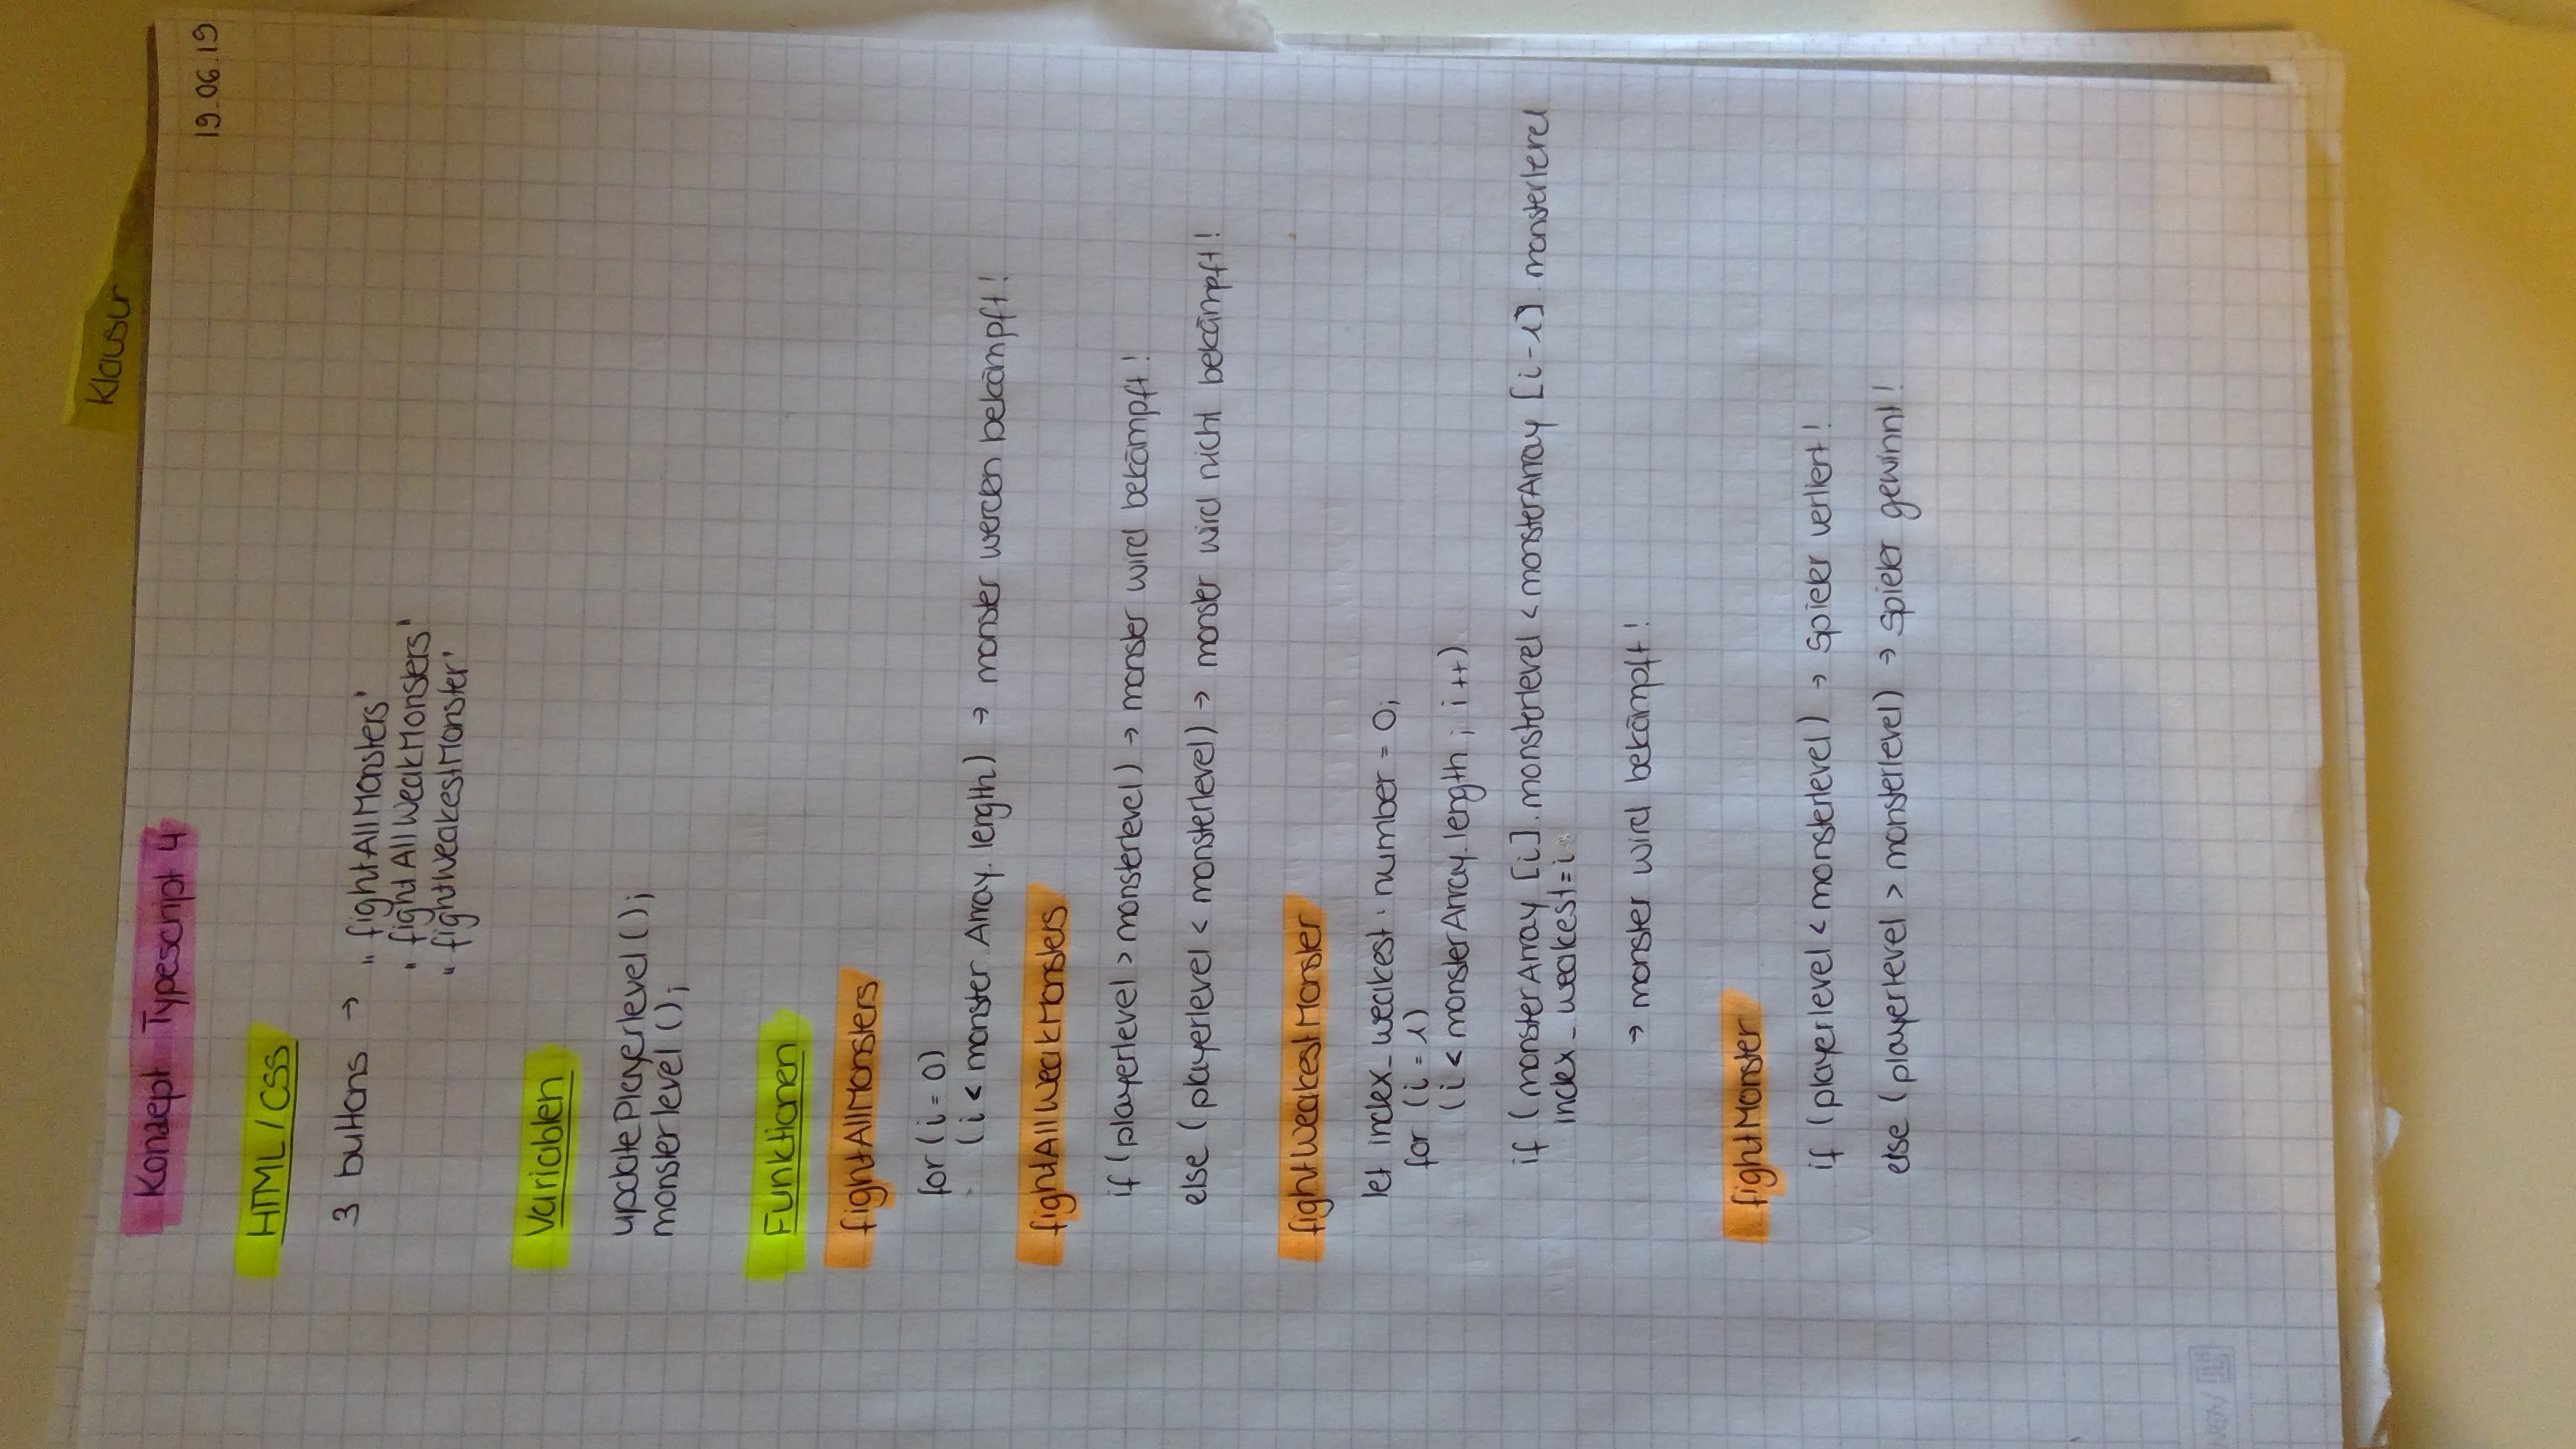 Klausur
Konzept Typescript 4
19.06.19
HTML / CSS
3 buttons → „fightAllMonsters"
„fightAllWeakMonsters"
„fightWeakestMonster"
Variablen
updatePlayerlevel ();
monsterlevel ();
Funktionen
fightAllMonsters
for (i = 0)
(i < monster Array. length) → monster werden bekämpft!
fightAllWeakMonsters
if (playerlevel > monsterlevel) → monster wird bekämpft!
else (playerlevel < monsterlevel) → monster wird nicht bekämpft!
fightWeakestMonster
let index_weakest : number = 0;
for (i = 1)
(i < monsterArray.length ; i++)
if (monsterArray [i].monsterlevel < monsterArray [i-1].monsterlevel
index_weakest = i
→ monster wird bekämpft!
fightMonster
if (playerlevel < monsterlevel) → Spieler verliert!
else (playerlevel > monsterlevel) → Spieler gewinnt!